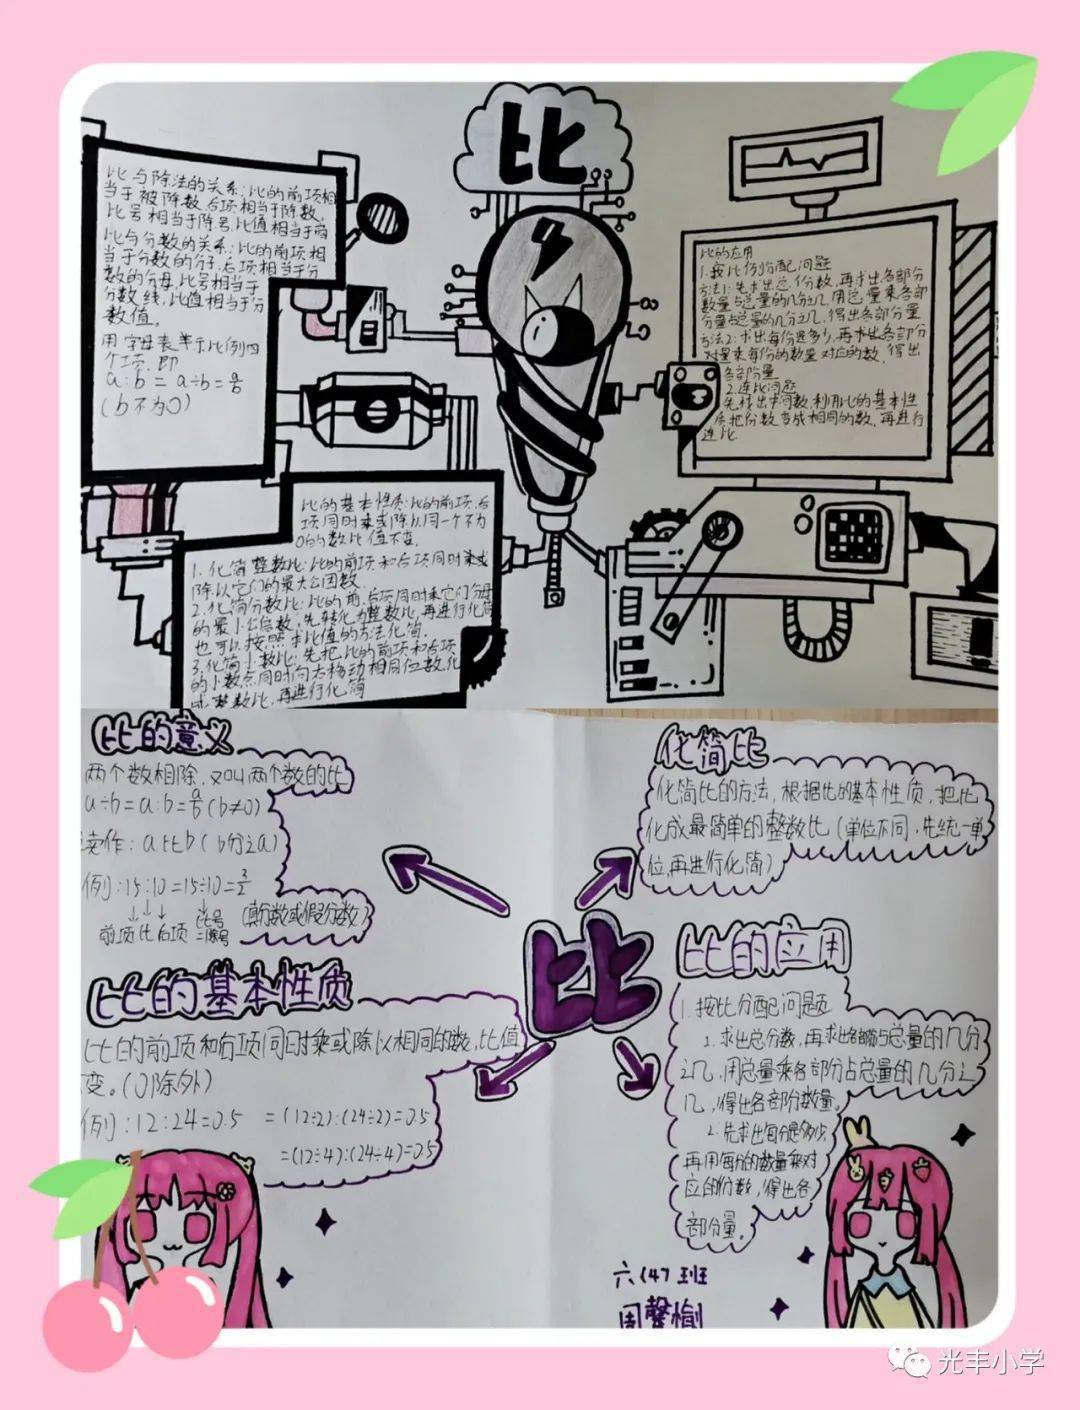 比
比与除法的关系:比的前项相
当于被除数,后项相当于除数,
比号相当于除号,比值相当于商
比与分数的关系:比的前项相
当于分数的分子,后项相当于分
数的分母,比号相当于
分数线,比值相当于分
数值。
用字母表示比例四
个项,即
a:b=a÷b=a/b
(b不为0)
比的应用
1.按比例分配问题
方法1:先求出总份数,再求出各部分
数量占总量的几分之几,用总量乘各部
分量占总量的几分之几,得出各部分量
方法2:求出每份是多少,再求出各部分
对量乘每份的数量对应的数,得出
各部分量
2.连比问题
先找出中间数,利用比的基本性
质把份数变成相同的数,再进行
连比
比的基本性质:比的前项,后
项同时乘或除以同一个不为
0的数比值不变.
1.化简整数比:比的前项和后项同时乘或
除以它们的最大公因数
2.化简分数比:比的前,后项同时乘它们分母
的最小公倍数,先转化为整数比,再进行化简
也可以按照求比值的方法化简.
3.化简小数比:先把比的前项和后项
的小数点同时向右移动相同位数化
成整数比,再进行化简
比的意义
两个数相除,又叫两个数的比
a÷b=a:b=a/b(b≠0)
读作:a比b(b分之a)
例:15:10=15÷10=3/2
↓↓↓ 比号 (真分数或假分数)
前项比后项 =除号
化简比
化简比的方法,根据比的基本性质,把比
化成最简单的整数比(单位不同,先统一单
位,再进行化简)
比
比的基本性质
比的前项和后项同时乘或除以相同的数,比值
变。(0除外)
例:12:24=0.5 =(12÷2):(24÷2)=0.5
=(12÷4):(24÷4)=0.5
比的应用
1.按比分配问题
1.求出总分数,再求出各部分占总量的几分
之几,用总量乘各部分占总量的几分之
几,得出各部分数量。
2.先求出每份是多少,
再用每份的数量乘对
应的份数,得出各
部分量。
六(4)班
光丰小学